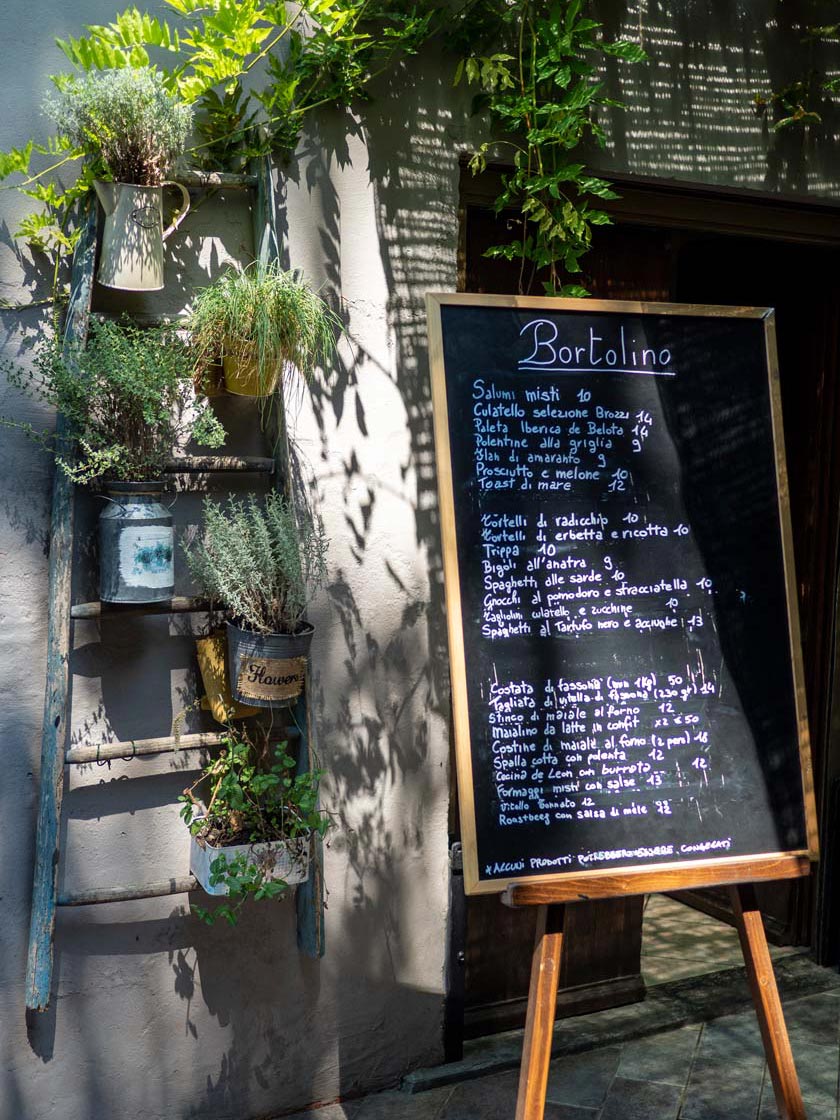 Bortolino
Salumi misti 10
Culatello selezione Brozzi 14
Paleta Iberica de Belota 14
Polentine alla griglia 9
Flan di amaranto 9
Prosciutto e melone 10
Toast di mare 12
Tortelli di radicchio 10
Tortelli di erbetta e ricotta 10
Trippa 10
Bigoli all'anatra 9
Spaghetti alle sarde 10
Gnocchi al pomodoro e stracciatella 10
Tagliolini culatello e zucchine 10
Spaghetti al Tartufo nero e acciughe 13
Costata di fassona (min 1kg) 50
Tagliata di vitella di fassona (230 gr) 14
Stinco di maiale al forno 12
Maialino da latte in confit x2 € 50
Costine di maiale al forno (2 pers) 18
Spalla cotta con polenta 12
Cecina de Leon con burrata 12
Formaggi misti con salse 13
Vitello Tonnato 12
Roastbeef con salsa di mele 12
*ALCUNI PRODOTTI POTREBBERO ESSERE CONGELATI
Flowers